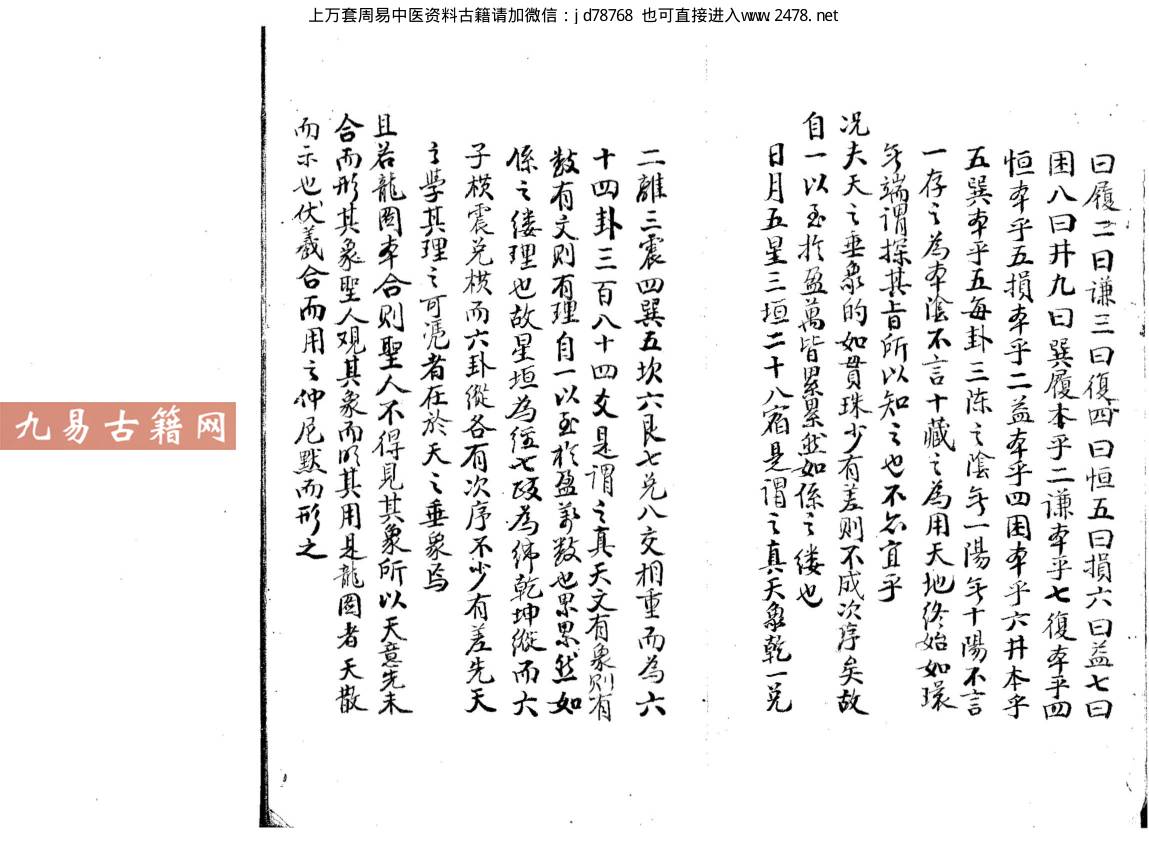 上万套周易中医资料古籍请加微信：jd78768 也可直接进入www.2478.net
曰履二曰谦三曰復四曰恒五曰損六曰益七曰
困八曰井九曰巽履本乎二谦本乎七復本乎四
恒本乎五損本乎二益本乎四困本乎六井本乎
五巽本乎五每卦三陈之陰无一陽无十陽不言
一存之為本陰不言十藏之為用天地终始如環
无端谓探其旨所以知之也不亦宜乎
况夫天之垂象的如貫珠少有差則不成次序矣故
自一以至於盈萬皆累累然如係之缕也
日月五星三垣二十八宿是謂之真天象乾一兑
二離三震四巽五坎六艮七兑八交相重而為六
十四卦三百八十四爻是謂之真天文有象則有
数有文則有理自一以至於盈万数也累累然如
係之缕理也故星垣為經七政為緯乾坤縱而大
子横震兑横而六卦縱各有次序不少有差先天
之學其理之可憑者在於天之垂象焉
且若龍圖本合則聖人不得見其象所以天意先未
合而形其象聖人观其象而明其用是龍圖者天散
而示也伏羲合而用之仲尼默而形之
九易古籍网